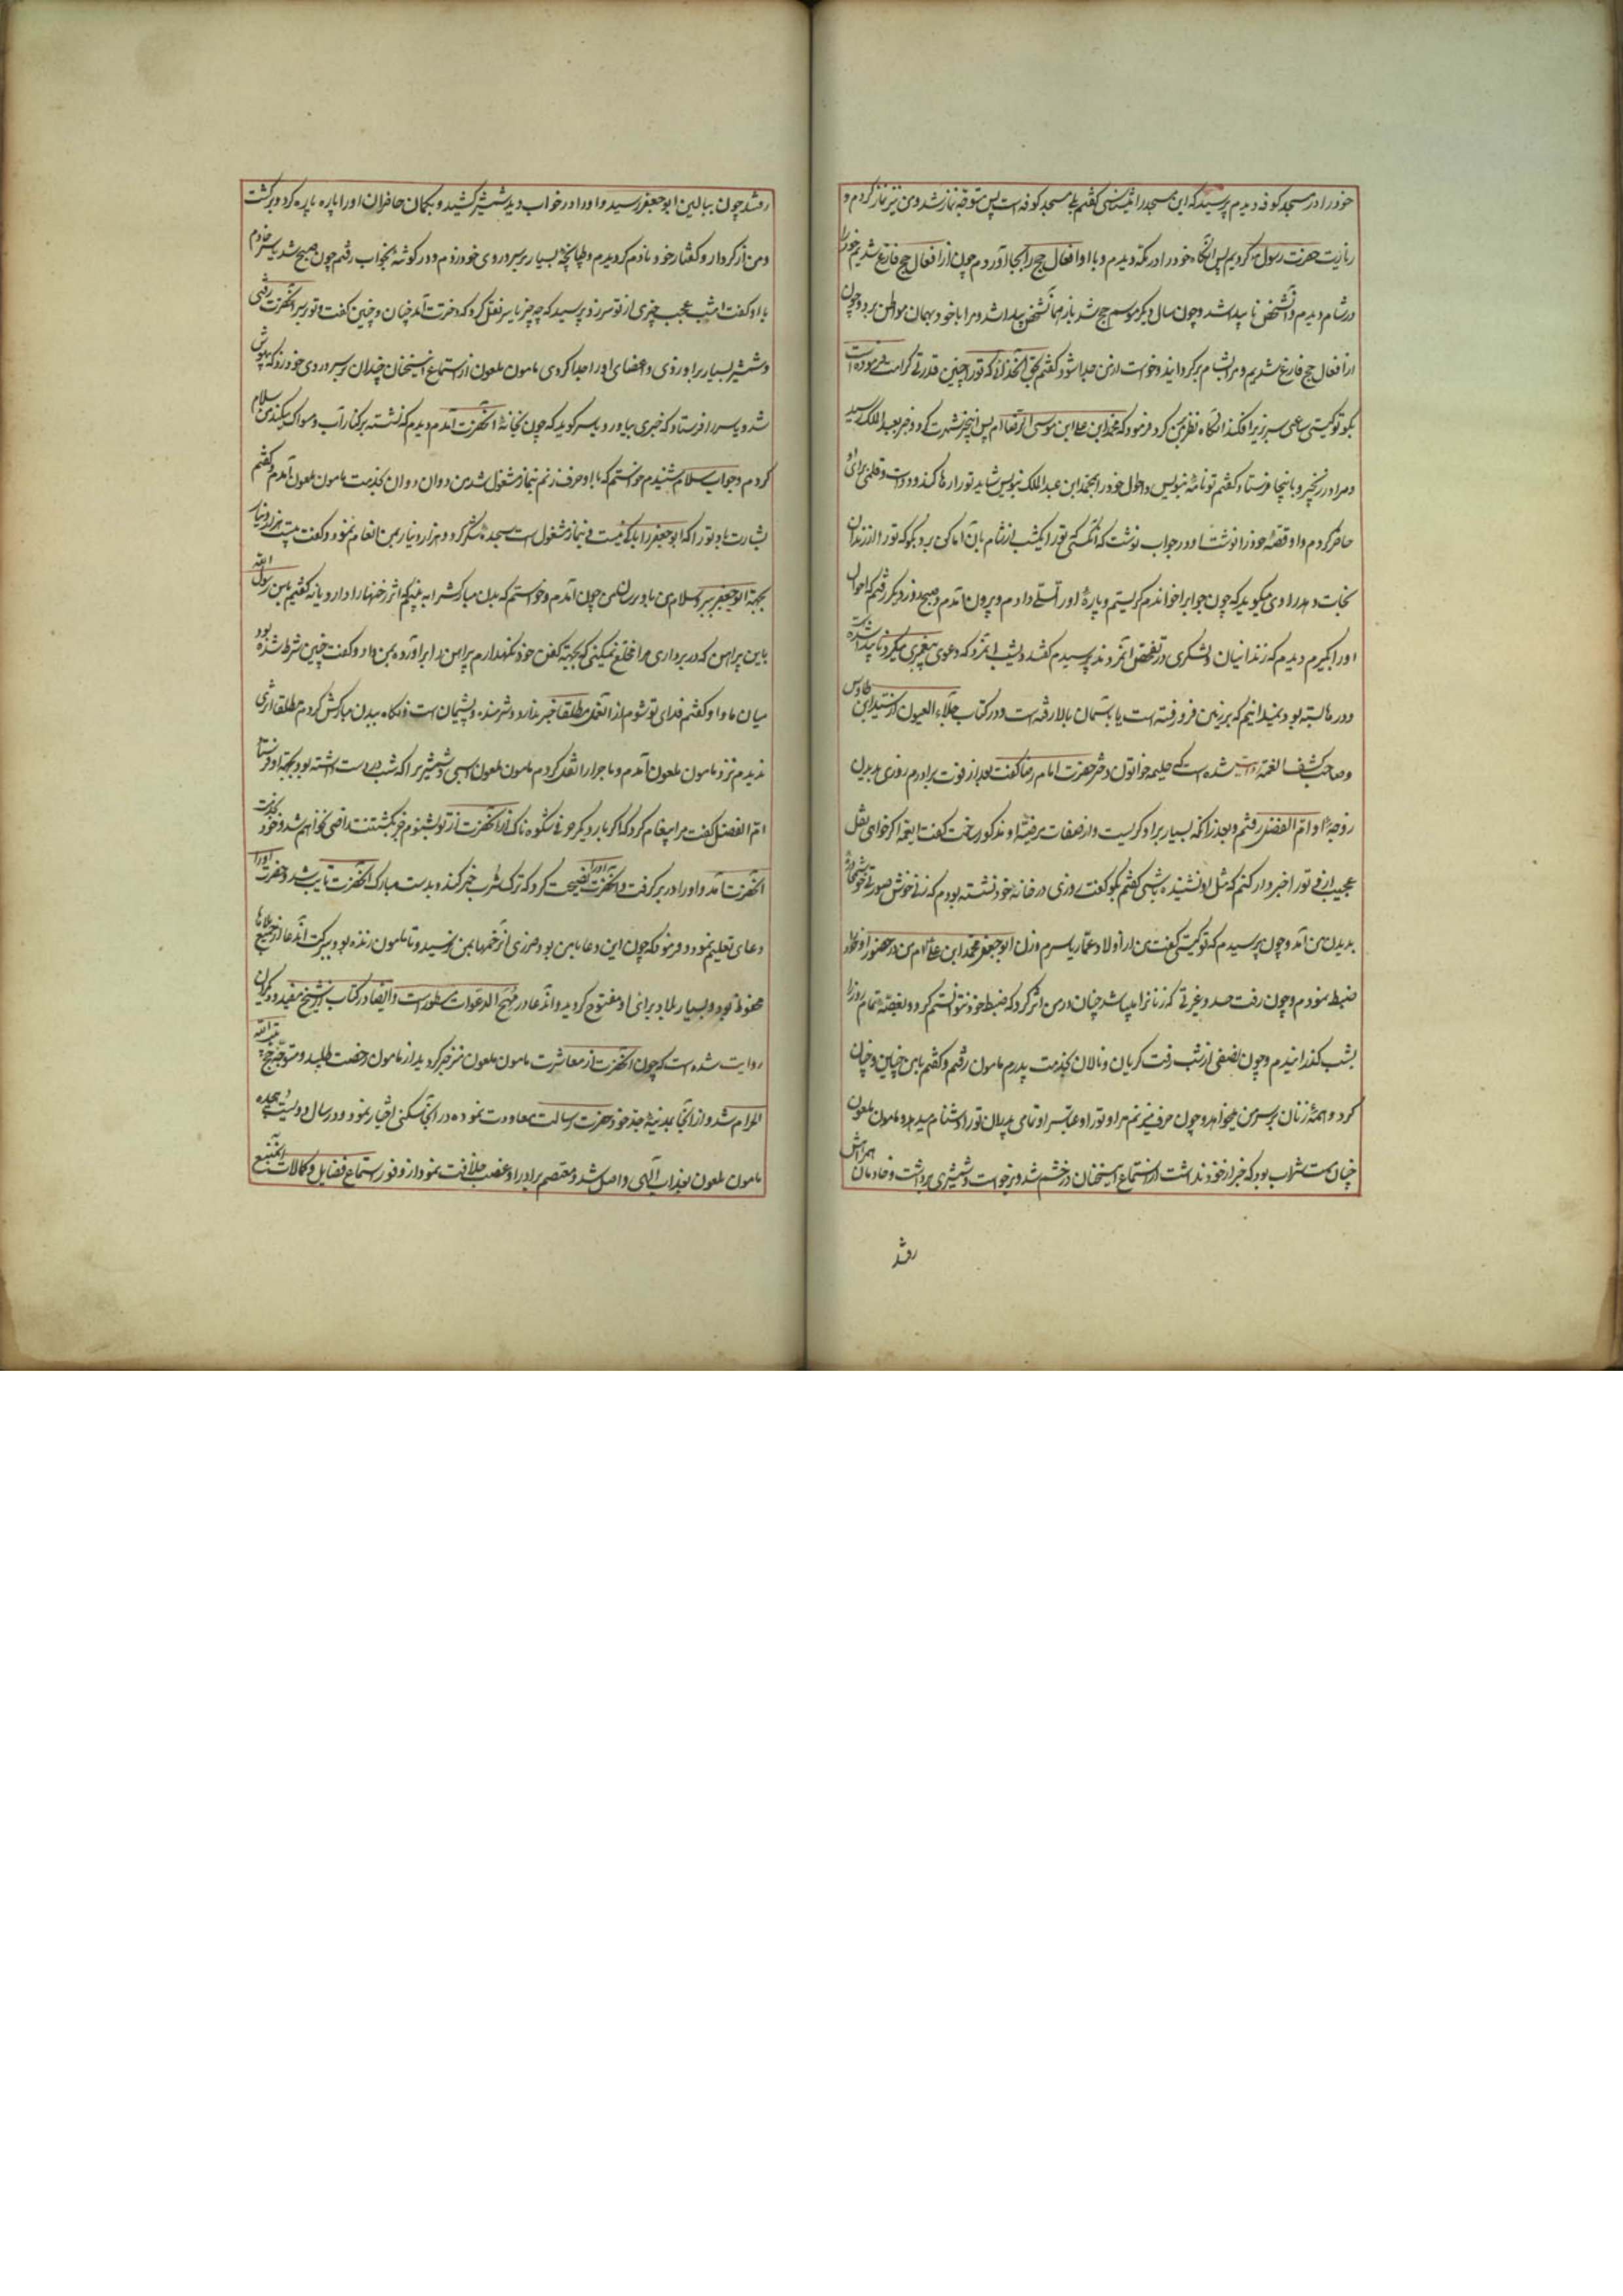 خود را در مسجد کوفه دیدم پرسید که این مسجد را میشناسی گفتم بلی مسجد کوفه است پس متوجه نماز شد و من نیز نماز کردم و
زیارت حضرت رسول کردیم پس آنگاه خود را در مکه دیدم و با او افعال حج را بجا آوردم چون از افعال حج فارغ شدیم خود را
در شام دیدم و آنشخص ناپیدا شد و چون سال دیگر موسم حج شد باز همانشخص پیدا شد و مرا با خود بهمان مواطن برد و چون
از افعال حج فارغ شدیم و مرا بشام برگردانید و خواست از من جدا شود گفتم بحق آنخدائی که تو را چنین قدرتی کرامت فرموده است
بگو تو کیستی ساعتی سر بزیر افکند آنگاه نظر بمن کرد فرمود که محمد ابن علی ابن موسی الرضا ام پس این خبر شهرت کرد و خبر بعبد الملک رسید
و مرا در زنجیر و باینجا فرستاد گفتم تو نامه بنویس و احوال خود را بمحمد ابن عبد الملک بنویس شاید تو را رها کند و دوات و قلمی برای او
حاضر کردم و او قصهٔ خود را نوشت او در جواب نوشت که آنکسی تو را یکشب از شام بآن اماکن برد بگو که تو را از زندان
نجات دهد راوی میگوید که چون جواب را خواندم گریستم و پارهٔ او را تسلی دادم و بیرون آمدم و صبح روز دیگر رفتم که احوال
او را بگیرم دیدم که زندانیان و لشکری در تفحص آنمردند پرسیدم گفتند دیشب آنمرد که دعوی پیغمبری میکرد ناپیدا شده
و در ها بسته بود نمیدانیم که بر زمین فرو رفته است یا بآسمان بالا رفته است و در کتاب جلاء العیون از سید ابن طاوس
و صاحب کشف الغمه روایت شده است که حلیمه خواتون دختر حضرت امام رضا گفت بعد از فوت برادرم روزی بدیدن
زوجهٔ او ام الفضل رفتم و بعد از آنکه بسیار بر او گریست و از صفات مرضیهٔ او مذکور ساخت گفت ایعمه اگر خواهی نقل
عجیب از وی تو را خبردار کنم که مثل او نشنیده باشی گفتم بگو گفت روزی در خانه خود نشسته بودم که زنی خوش صورتی خوش محاوره
بدیدن من آمد و چون پرسیدم که تو کیستی گفت من از اولاد عمار یاسرم و زن ابو جعفر محمد ابن علی ام من در حضور او خود را
ضبط نمودم و چون رفت حسد و غیرتی که زنانرا میباشد چنان در من اثر کرد که ضبط خود نتوانستم کرد و بغصه تمام روز را
بشب گذرانیدم و چون نصفی از شب رفت گریان و نالان بخدمت پدرم مامون رفتم و گفتم با من چنین و چنان
کرد و همهٔ زنان بر سر من میخواهد و چون حرف میزنم مرا و تو را و عباس و تمامی پدران تو را دشنام میدهد و مامون ملعون
چنان مست شراب بود که خبر از خود نداشت از استماع اینسخنان در خشم شد و برخواست و شمشیری برداشت و خادمان همراش
رفتند
رفتند چون ببالین ابو جعفر رسید و او را در خواب دید شمشیر کشید و بگمان حاضران او را پاره پاره کرد و برگشت
و من از کردار و گفتار خود نادم گردیدم و طپانچه بسیار بر سر و روی خود زدم و در گوشه بخواب رفتم چون صبح شد یاسر خادم
با او گفت امشب عجب چیزی از تو سر زد پرسید که چه چیز یاسر نقل کرد که دخترت آمد چنان و چنین گفت و تو بر سر آنحضرت رفتی
و شمشیر بسیار بر او زدی و اعضای او را جدا کردی مامون ملعون از استماع اینسخنان چندان بر سر و روی خود زد که بیهوش
شد و یاسر را فرستاد که خبری بیاورد یاسر گوید که چون بخانهٔ آنحضرت آمدم دیدم که نشسته بر کنار آب و مسواک میکند من سلام
کردم و جواب سلام شنیدم خواستم که با او حرف زنم بنماز مشغول شد من دوان دوان بخدمت مامون ملعون آمدم و گفتم
بشارت باد تو را که ابو جعفر را باکی نیست و بنماز مشغول است سجدهٔ شکر کرد و هزار دینار بمن انعام نمود و گفت بیست هزار دینار
بجهة ابو جعفر ببر و سلام من باو برسان من چون آمدم و خواستم که بدن مبارکشرا به بینم که اثر زخمها را دارد یا نه گفتم یابن رسول الله
باین پیراهن که در برداری مرا مخلع نمیکنی که بجهة کفن خود نگهدارم پیراهن را برآورده بمن داد و گفت چنین شرط شده بود
میان ما و او گفتم فدای تو شوم از آنعمل مطلقا خبر ندارد و شرمنده و پشیمان است و نگاه ببدن مبارکش کردم مطلقا اثری
ندیدم نزد مامون ملعون آمدم و ماجرا را نقل کردم مامون ملعون اسبی و شمشیر را که شب در دست داشته بود بجهة او فرستاد
ام الفضل گفت مرا پیغام کرد که اگر بار دیگر حرفی شکوه ناک از آنحضرت از تو بشنوم خبر بکشتنت راضی خواهم شد و خود بخدمت
آنحضرت آمد و او را در بر گرفت و آنحضرت او را نصیحت کرد که ترک شرب خمر کند و بدست مبارک آنحضرت تایب شد و حضرت او را
دعای تعلیم نمود و فرمود که چون این دعا با من بود ضرری از زخمها بمن نرسید و تا مامون زنده بود ببرکت آندعا از جمیع بلاها
محفوظ بود و بسیار بلاد برای او مفتوح گردید و آندعا در مهج الدعوات مسطور است و ایضا در کتاب از شیخ مفید و دیگران
روایت شده است که چون آنحضرت از معاشرت مامون ملعون منزجر گردید از مامون رخصت طلبید و متوجه حج بیت الله
الحرام شد و از آنجا بمدینهٔ جد خود حضرت رسالت معاودت نموده در آنجا سکنی اختیار نمود و در سال دویست و هجده
مامون ملعون بعذاب الهی واصل شد و معتصم برادر او غصب خلافت نمود از وفور استماع فضایل و کمالات آنمنبع